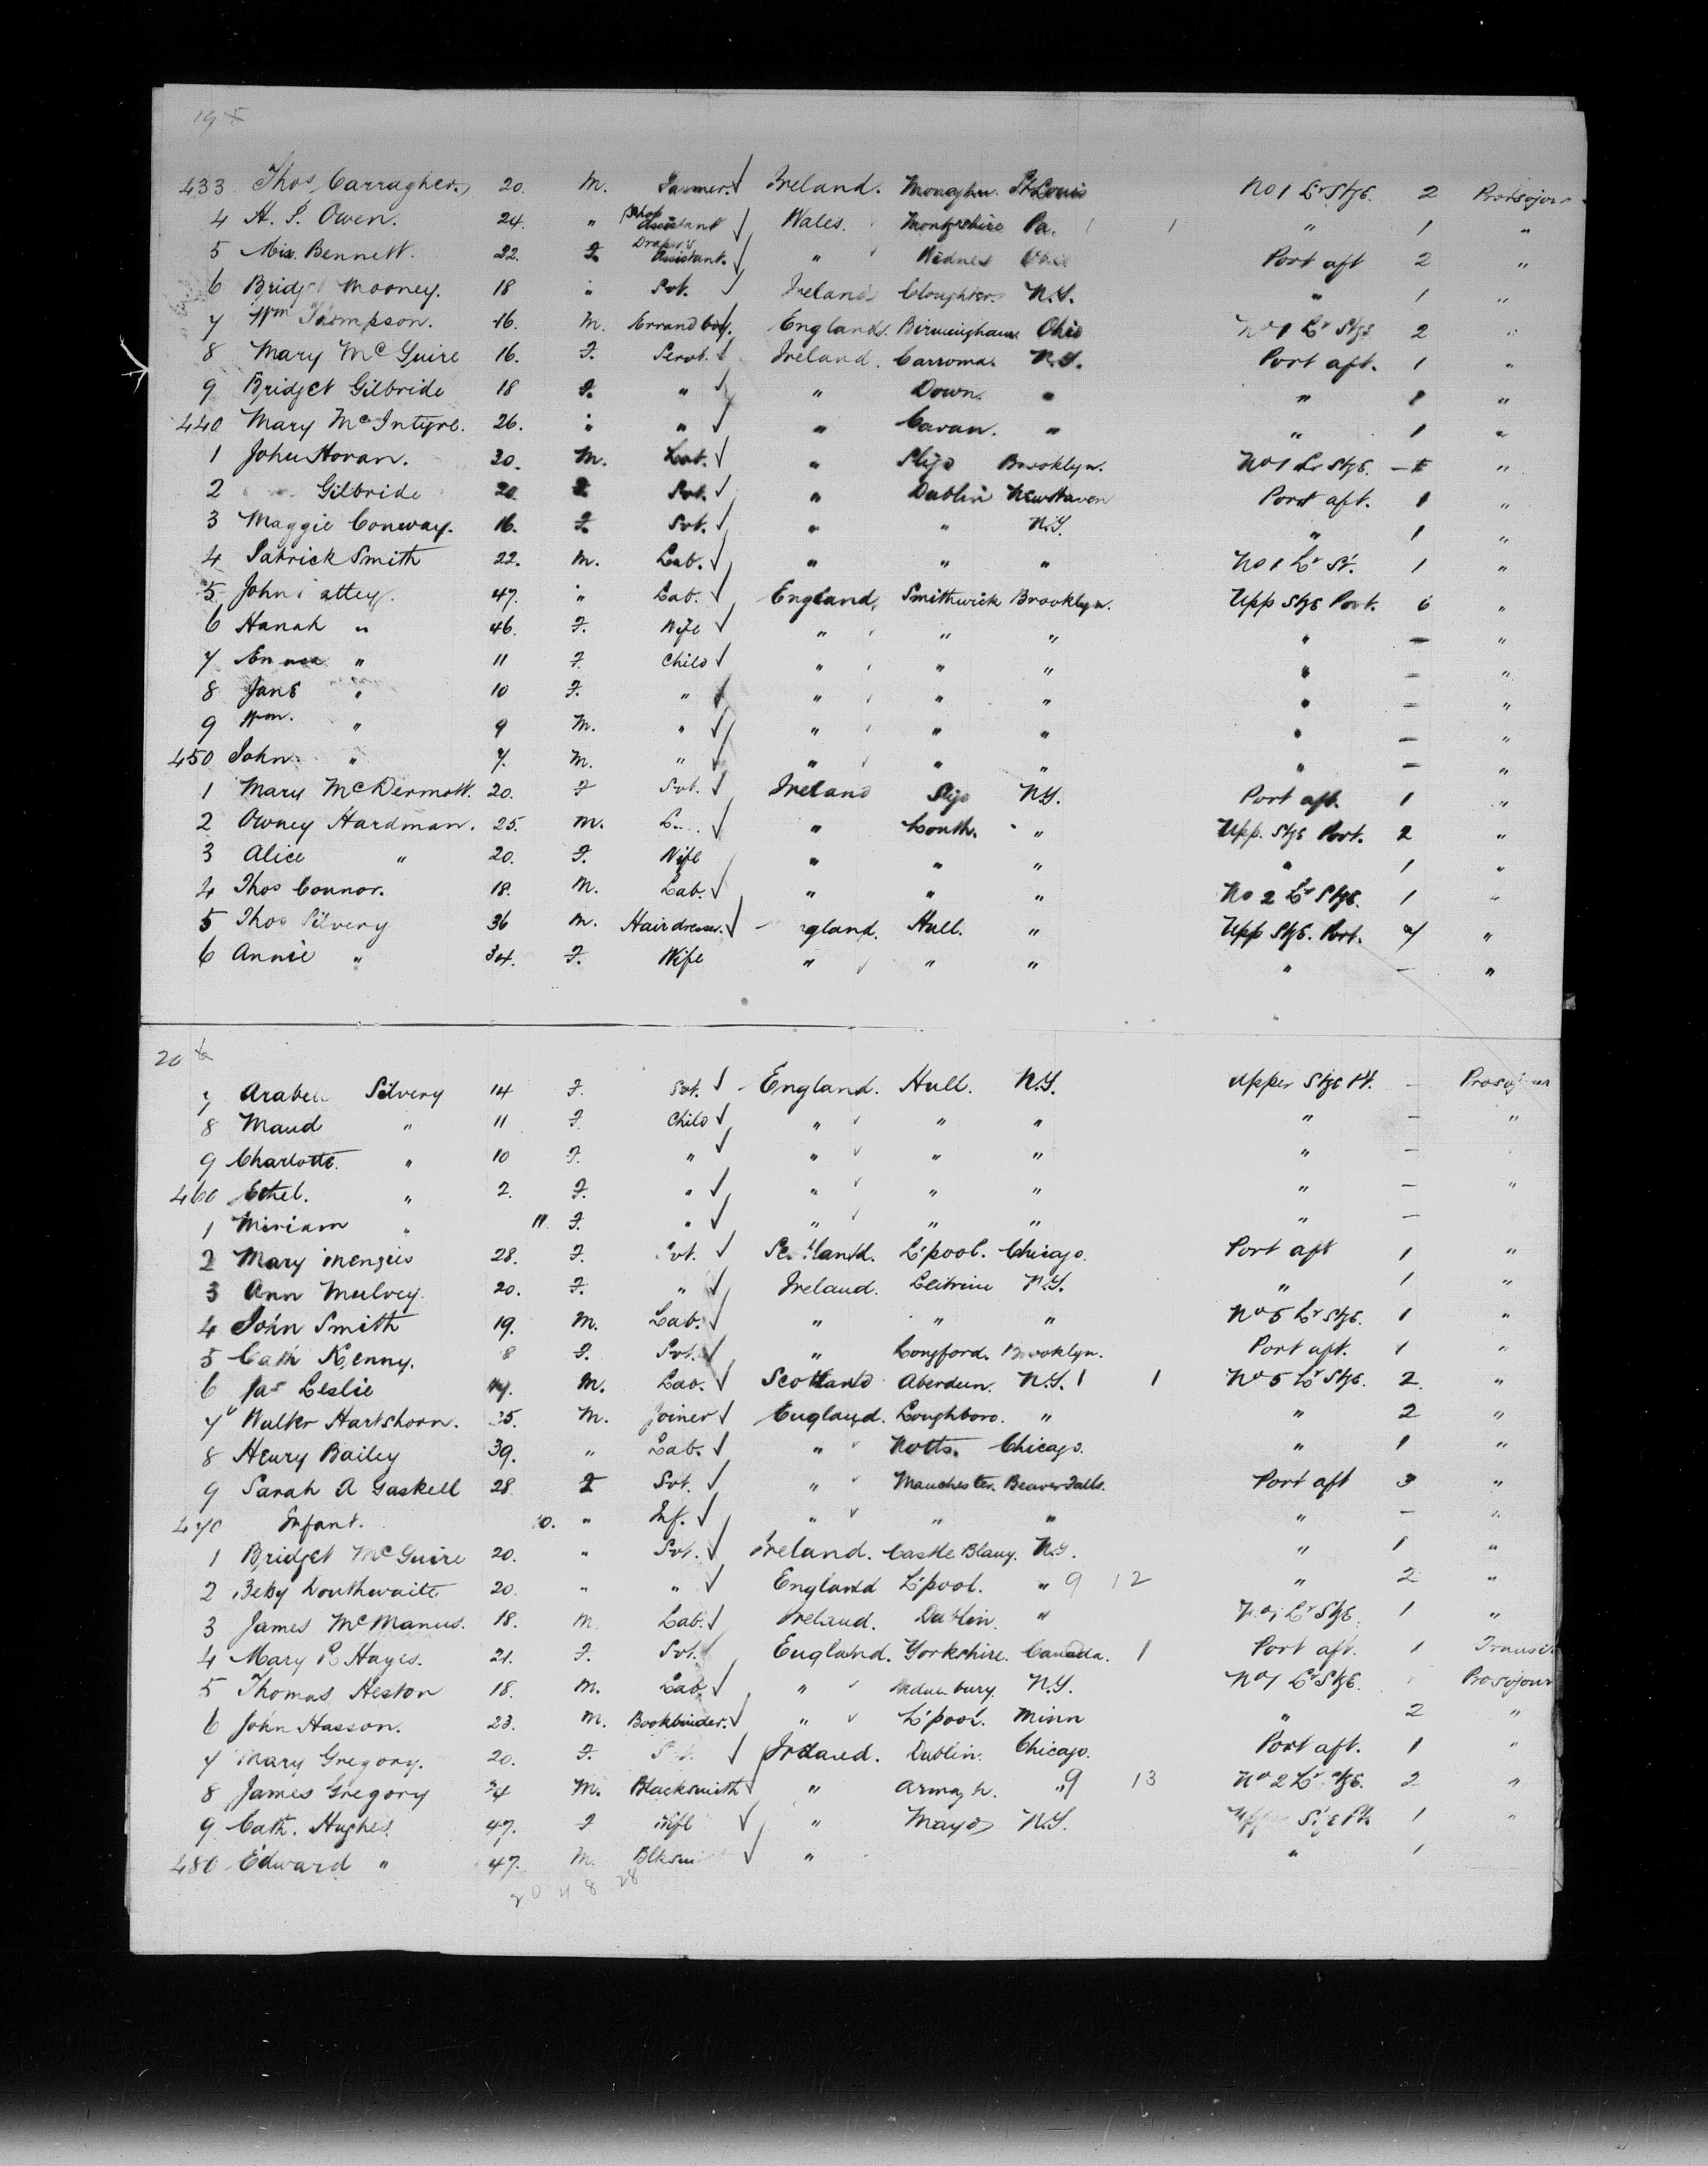 19
433 Thos Carragher. 20. M. Farmer. Ireland. Monaghan St Louis No 1 Lr Stge. 2 Prosojour
4 H. P. Owen. 24. " Shop Assistant Wales. Montgshire Pa. 1 " 1 "
5 Miss Bennett. 22. F. Draper's Assistant. " Widnes Ohio Port aft 2 "
6 Bridget Mooney. 18 " Svt. Ireland Cloughter. N.Y. " 1 "
7 Wm Thompson. 16. M. Errand boy. England. Birmingham Ohio No 1 Lr Stge 2 "
8 Mary McGuire 16. F. Servt. Ireland. N.Y. Port aft. 1 "
9 Bridget Gilbride 18 F. " " Down. " " 1 "
440 Mary McIntyre. 26. " " " Cavan. " " 1 "
1 John Horan. 30. M. Lab. " Sligo Brooklyn. No 1 Lr Stge. "
2 Gilbride 20 F Svt. " Dublin New Haven Port aft. 1 "
3 Maggie Conway. 16. F. Svt. " " N.Y. " 1 "
4 Patrick Smith 22. M. Lab. " " " No 1 Lr St. 1 "
5 John attey. 47. " Lab. England, Smithwick Brooklyn. Upp Stge Port. 6 "
6 Hanah " 46. F. Wife " " " " — "
7 Emma " 11 F. Child " " " " — "
8 Jane " 10 F. " " " " " — "
9 Wm. " 9 M. " " " " " — "
450 John " 7. M. " " " " " — "
1 Mary McDermott. 20. F Svt. Ireland Sligo N.Y. Port aft. 1 "
2 Owney Hardman. 25. M. " Louth. " Upp. Stge Port. 2 "
3 Alice " 20. F. Wife " " " " 1 "
4 Thos Connor. 18. M. Lab. " " " No 2 Lr Stge. 1 "
5 Thos Silvery 36 M. Hairdresser. England. Hull. " Upp Stge. Port. 7 "
6 Annie " 34. F. Wife " " " " — "
20
7 Arabell Silvery 14 F. Svt. England. Hull. N.Y. Upper Stge Pt. — Prosojour
8 Maud " 11 F. Child " " " " — "
9 Charlotte. " 10 F. " " " " " —
460 Ethel. " 2. F. " " " " " — "
1 Miriam " 11. F. " " " " " —
2 Mary Menzies 28. F. Svt. Scotland. L'pool. Chicago. Port aft 1 "
3 Ann Mulvey. 20. F. " Ireland. Leitrim N.Y. " 1 "
4 John Smith 19. M. Lab. " " " No 5 Lr Stge. 1 "
5 Cath Kenny. 8 F. Svt. " Longford. Brooklyn. Port aft. 1 "
6 Jas Leslie M. Lab. Scotland Aberdeen. N.Y. 1 1 No 5 Lr Stge. 2 "
7 Walter Hartshorn. 25. M. Joiner England. Loughboro. " " 2 "
8 Henry Bailey 39. " Lab. " Notts. Chicago. " 1 "
9 Sarah A Gaskell 28. F Svt. " Manchester. Beaver Falls. Port aft 3 "
470 Infant. 10. " Inf. " " " " — "
1 Bridget McGuire 20. " Svt. Ireland. Castle Blany. N.Y. " 1 "
2 Betsy Louthwaite 20. " " England L'pool. " 9 12 " 2 "
3 James McManus. 18. M. Lab. Ireland. Dublin. " No 1 Lr Stge. 1 "
4 Mary Hayes. 21. F. Svt. England. Yorkshire. Canada. 1 Port aft. 1 Transit.
5 Thomas Heston 18. M. Lab. " N.Y. No 1 Lr Stge. Prosojour
6 John Hasson. 23. M. Bookbinder. " L'pool. Minn " 2 "
7 Mary Gregory. 20. F. Ireland. Dublin. Chicago. Port aft. 1 "
8 James Gregory 24 M. Blacksmith " Armagh. " 9 13 No 2 Lr Stge. 2 "
9 Cath. Hughes. 47. F Wife " Mayo N.Y. Upper Stge Pt. 1 "
480 Edward " 47. M. Blksm " " 1
20 4 8 28